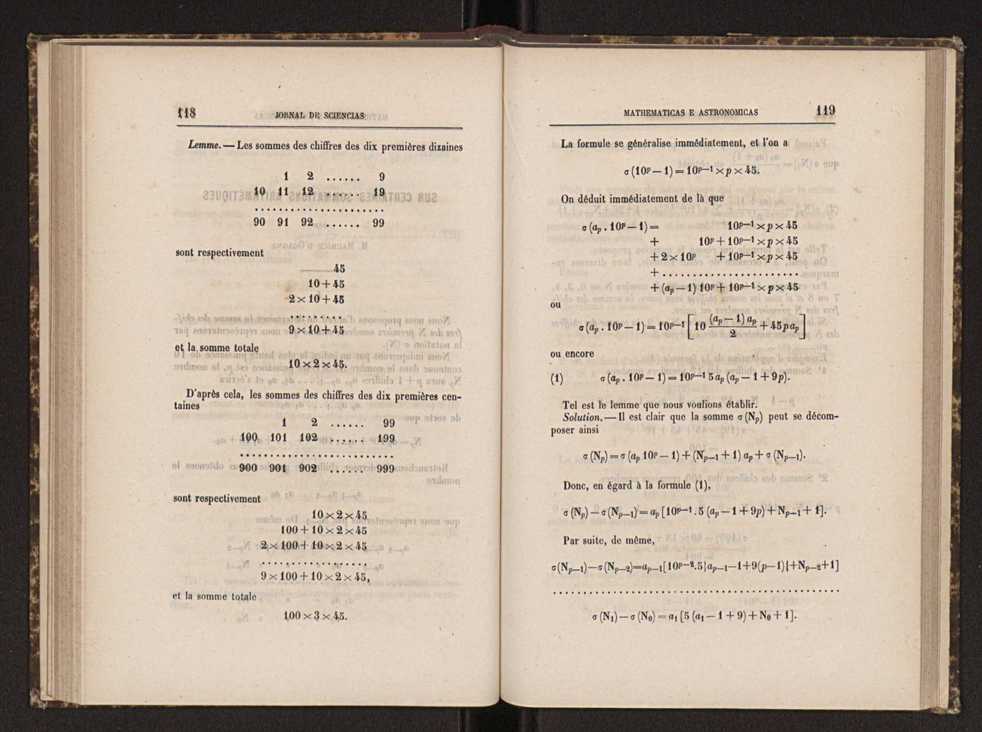 118 JORNAL DE SCIENCIAS
Lemme. — Les sommes des chiffres des dix premières dizaines
1 2 ...... 9
10 11 12 ...... 19
........................
90 91 92 ...... 99
sont respectivement
45
10 + 45
2 × 10 + 45
.........
9 × 10 + 45
et la somme totale
10 × 2 × 45.
D'après cela, les sommes des chiffres des dix premières cen-
taines
1 2 ...... 99
100 101 102 ...... 199
...........................
900 901 902 ...... 999
sont respectivement
10 × 2 × 45
100 + 10 × 2 × 45
2 × 100 + 10 × 2 × 45
...................
9 × 100 + 10 × 2 × 45,
et la somme totale
100 × 3 × 45.
MATHEMATICAS E ASTRONOMICAS 119
La formule se généralise immédiatement, et l'on a
σ (10^p — 1) = 10^{p—1} × p × 45.
On déduit immédiatement de là que
σ (a_p . 10^p — 1) = 10^{p—1} × p × 45
+ 10^p + 10^{p—1} × p × 45
+ 2 × 10^p + 10^{p—1} × p × 45
+ ......................
+ (a_p — 1) 10^p + 10^{p—1} × p × 45
ou
σ (a_p . 10^p — 1) = 10^{p—1} [10 (a_p — 1) a_p / 2 + 45 p a_p]
ou encore
(1) σ (a_p . 10^p — 1) = 10^{p—1} 5 a_p (a_p — 1 + 9p).
Tel est le lemme que nous voulions établir.
Solution. — Il est clair que la somme σ (N_p) peut se décom-
poser ainsi
σ (N_p) = σ (a_p 10^p — 1) + (N_{p—1} + 1) a_p + σ (N_{p—1}).
Donc, en égard à la formule (1),
σ (N_p) — σ (N_{p—1}) = a_p [10^{p—1} . 5 (a_p — 1 + 9p) + N_{p—1} + 1].
Par suite, de même,
σ (N_{p—1}) — σ (N_{p—2}) = a_{p—1} [10^{p—2} . 5 {a_{p—1} — 1 + 9 (p — 1)} + N_{p—2} + 1]
..............................................
σ (N_1) — σ (N_0) = a_1 [5 (a_1 — 1 + 9) + N_0 + 1].